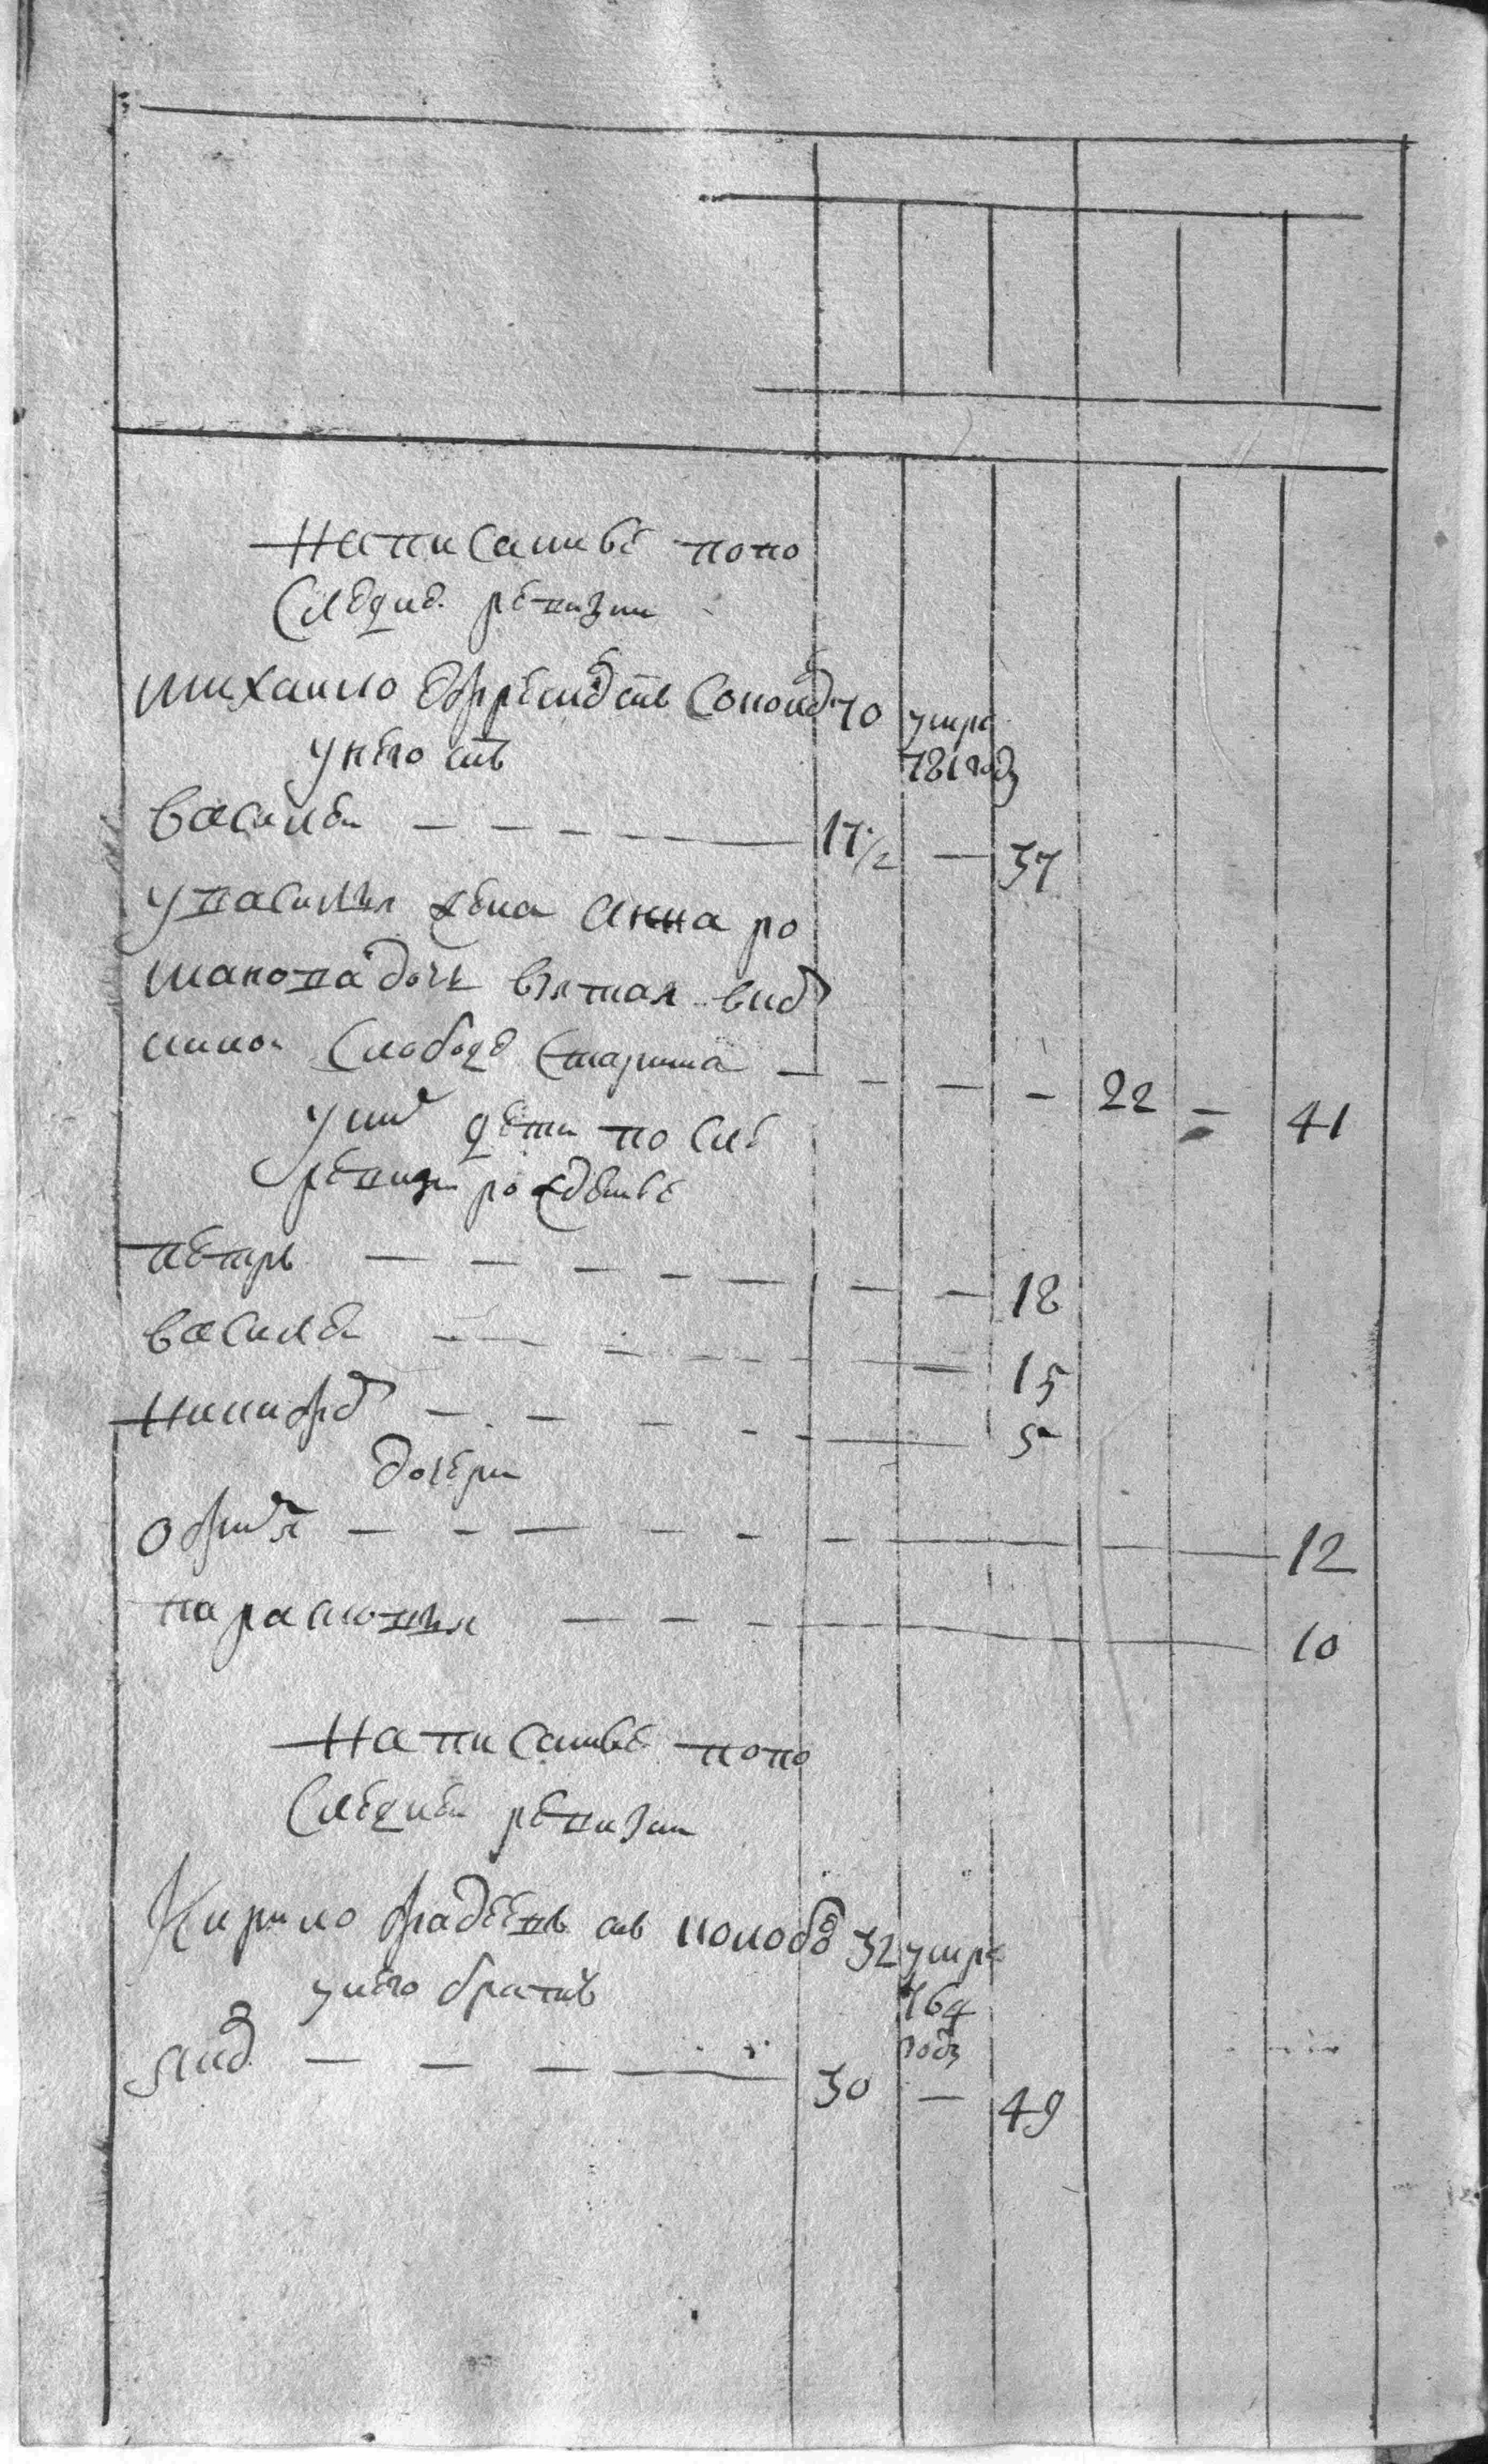 написанные попо
следней ревизии
михаило ефремовъ снъ соколовъ 70 умре
у него снъ 781 годъ
василей — — — — — 17 1/2 — 37
у василья жена анна ро
манова дочь взятая в
слободе старинна — — — — 22 — 41
у них дети после
ревизи рожденные
петръ — — — — — — — 18
василей — — — — — — 15
никифоръ — — — — — 5
дочери
офимья — — — — — — — 12
парасковья — — — — — 10
написанные попо
следней ревизии
Кирило фадеевъ снъ 32 умре
у него братъ 764
годъ
яковъ — — — — 30 — 49